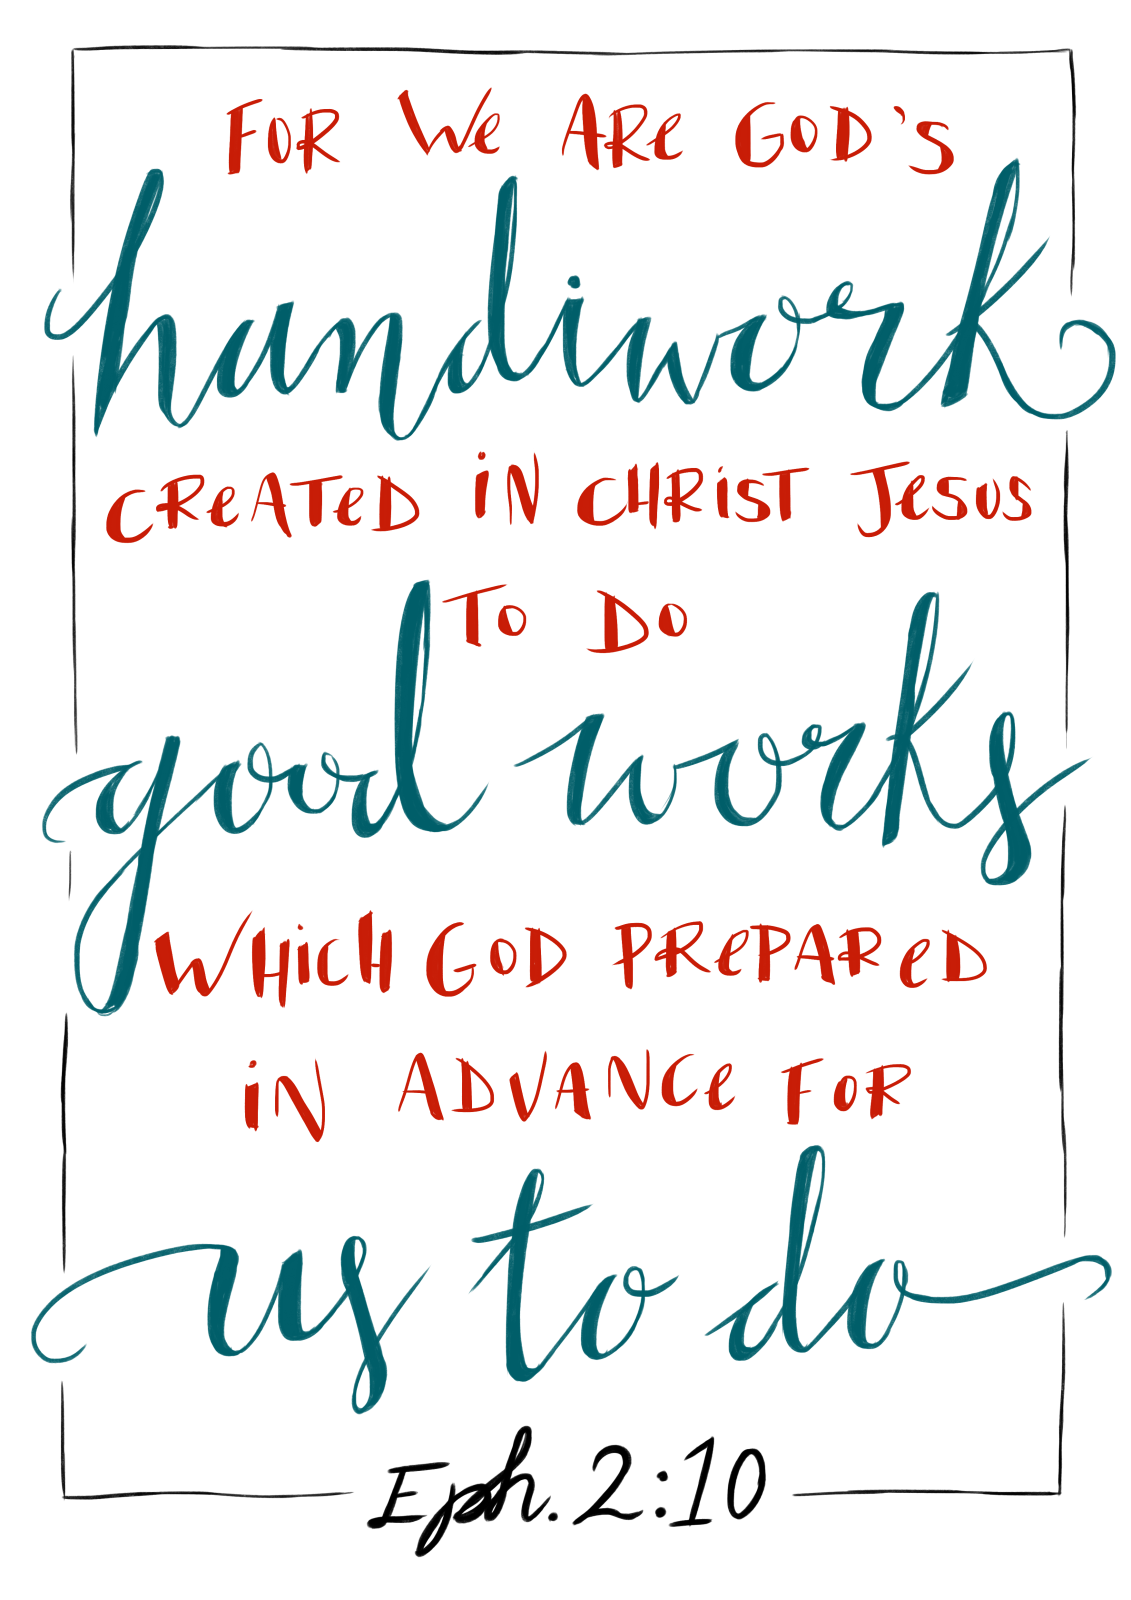 FOR We ARe GOD'S
handiwork
CReATeD iN CHRiST JeSUS
TO DO
good works
WHiCH GOD PRePAReD
iN ADVANCe FOR
us to do
Eph. 2:10